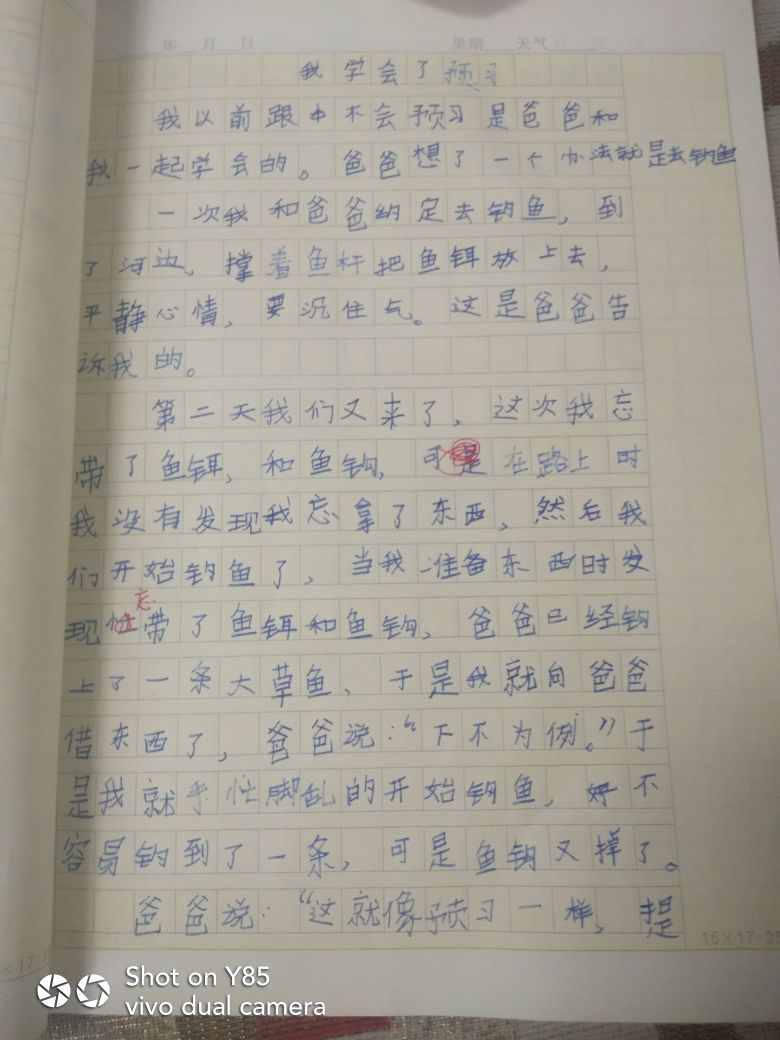 年 月 日 星期 天气
我学会了预习
我以前跟本不会预习是爸爸和
我一起学会的。爸爸想了一个办法就是去钓鱼
一次我和爸爸约定去钓鱼，到
了河边，撑着鱼杆把鱼饵放上去，
平静心情，要沉住气。这是爸爸告
诉我的。
第二天我们又来了，这次我忘
带了鱼饵，和鱼钩，可是在路上时
我没有发现我忘拿了东西，然后我
们开始钓鱼了，当我准备东西时发
忘
现忙带了鱼饵和鱼钩，爸爸已经钓
上了一条大草鱼，于是我就向爸爸
借东西了，爸爸说：“下不为例。”于
是我就手忙脚乱的开始钓鱼，好不
容易钓到了一条，可是鱼钩又掉了。
爸爸说：“这就像预习一样，提
15×17=25
×17=2
Shot on Y85
vivo dual camera